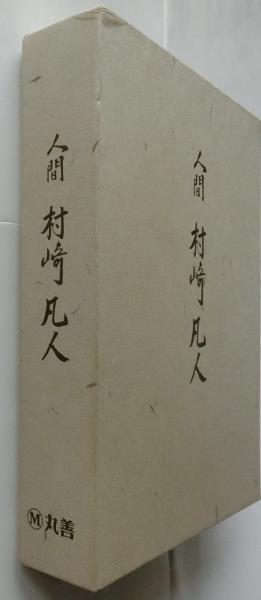 人間 村崎凡人
Ⓜ丸善
人間 村崎凡人